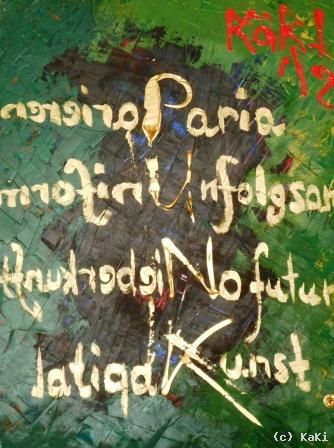 KaKi
19
nereiraParia
mrofinUnfolgsam
tfnukredeiNo futur
latipaKunst
(c) KaKi